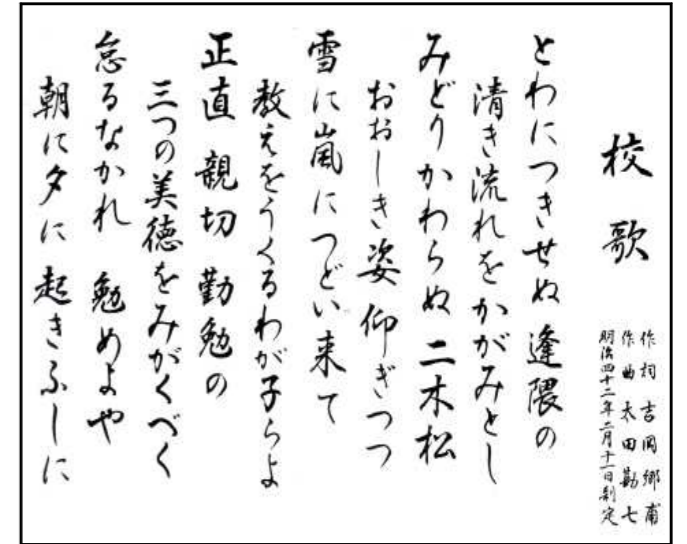 校歌
作詞 吉岡郷甫
作曲 太田勘七
明治四十二年二月十一日制定
とわにつきせぬ 逢隈の
清き流れを かがみとし
みどりかわらぬ 二木松
おおしき姿 仰ぎつつ
雪に嵐に つどい来て
教えをうくる わが子らよ
正直 親切 勤勉の
三つの美徳を みがくべく
怠るなかれ 勉めよや
朝に夕に 起きふしに